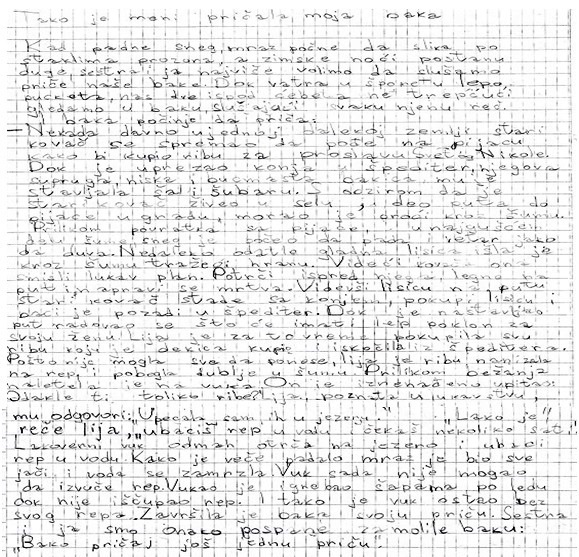 Tako je meni pričala moja baka
Kad padne sneg, mraz počne da slika po
staklima prozora, a zimske noći postanu
duge, sestra i ja najviše volimo da slušamo
priče naše bake. Dok vatra u šporetu lepo
pucketa, nas dve ispod ćebeta ne trepćući
gledamo u baku, slušajući svaku njenu reč.
I baka počinje da priča:
- Nekada davno u jednoj dalekoj zemlji stari
kovač se spremao da pođe na pijacu
kako bi kupio ribu za proslavu Svetog Nikole.
Dok je uprezao konja u špediter, njegova
supruga, niska i bucmasta bakica mu je
stavljala šal i šubaru. S obzirom da je
stari kovač živeo u selu, i deo puta do
pijace u gradu, morao je proći kroz šumu.
Prilikom povratka sa pijace, u najgušćem
delu šume sneg je počeo da pada i vetar jako
da duva. Nedaleko odatle gladna lisica išla je
kroz šumu tražeći hranu. Videvši kovača ona
smisli lukav plan. Potrči ispred njega, lega na
put i napravi se mrtva. Videvši lisicu na putu
stari kovač stade sa konjem, pokupi lisicu i
baci je pozadi u špediter. Dok je nastavljao
put radovao se što će imati lep poklon za
svoju ženu. Lija je za to vreme pokupila svu
ribu koji je dekica kupio i iskočila iz špeditera.
Pošto nije mogla sve da ponese, lija je ribu nanizala
na rep i pobegla dublje u šumu. Prilikom bežanja
naletela je na vuka. On je iznenađeno upita:
Odakle ti toliko ribe? Lija, poznata u lukavstvu,
mu odgovori: "Upecala sam ih u jezeru." "Lako je"
reče lija, "ubaciš rep u vodu i čekaš nekoliko sati."
Lakoverni vuk odmah otrča na jezero i ubaci
rep u vodu. Kako je veče padalo mraz je bio sve
jači i voda se zamrzla. Vuk sada nije mogao
da izvuče rep. Vukao je i grebao šapama po ledu
dok nije iščupao rep. I tako je vuk ostao bez
svog repa. Završila je baka svoju priču. Sestra
i ja smo onako pospane zamolile baku:
"Bako pričaj još jednu priču".